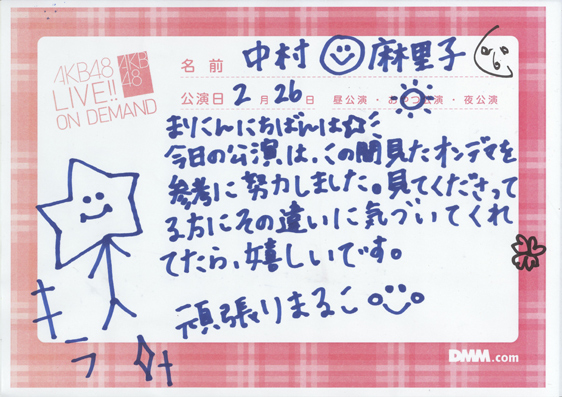 AKB48
LIVE!!
ON DEMAND
AKB
48
名前 中村 麻里子
公演日 2月26日 昼公演・おやつ公演・夜公演
まりこんにちばんは☆
今日の公演は、この間見たオンデマを
参考に努力しました。見てくださって
る方にその違いに気づいてくれ
てたら、嬉しいです。
頑張りまるこ
キラ
DMM.com